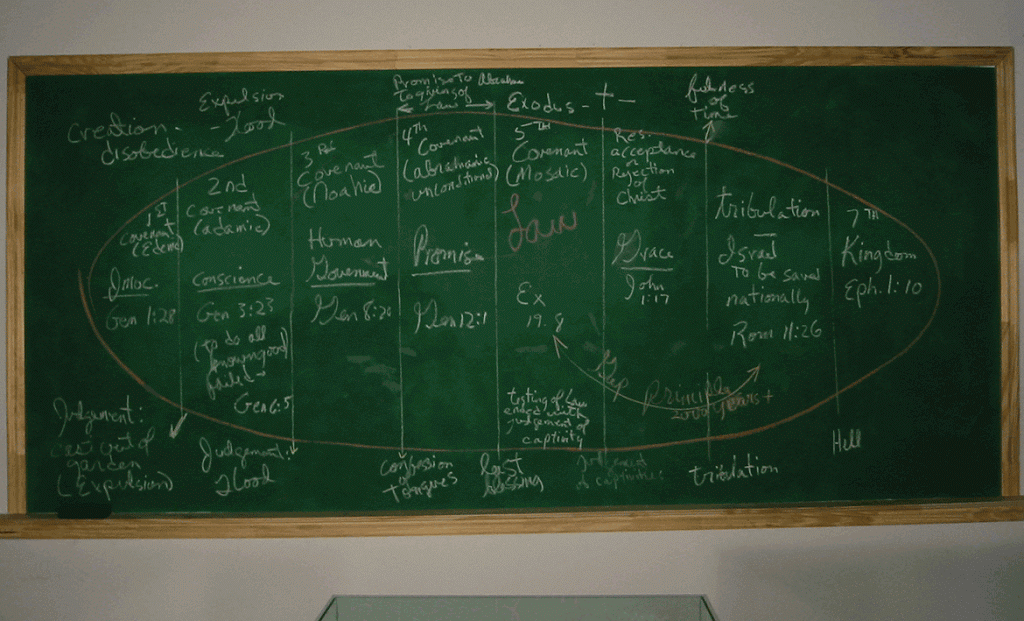 Creation -
disobedience
Expulsion
- Flood
Promise To Abraham
To giving of
Law
Exodus -
fullness
of
time
1ST
Covenant
(Edenic)
Innoc.
Gen 1:28
2nd
Covenant
(adamic)
Conscience
Gen 3:23
(to do all
known good)
failed -
Gen 6:5
3rd
Covenant
(Noahic)
Human
Government
Gen 8:20
4TH
Covenant
(abrahamic
unconditional)
Promise
Gen 12:1
5TH
Covenant
(Mosaic)
Law
Ex
19:8
testing of Law
ended with
judgement of
captivity
Res.
acceptance
or
Rejection
of
Christ
Grace
John
1:17
Gap Principle
2000 years +
tribulation
Israel
To be saved
nationally
Rom 11:26
7TH
Kingdom
Eph. 1:10
Judgement:
cast out of
garden
(Expulsion)
Judgement:
Flood
confusion
of
tongues
lost
blessing
Judgement
of captivities
tribulation
Hell